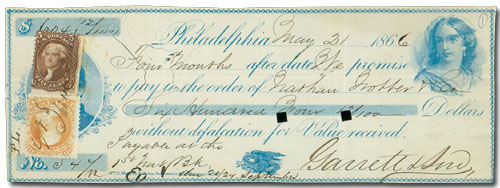 $ 604 12/100 Philadelphia May 21 1866
Four months after date We promise
to pay to the order of Nathan Trotter & Co
Six Hundred Four 12/100 Dollars
without defalcation for Value received.
Payable at the
1st Natl Bk Garrett & Son
No. 547 Due 21/24 September